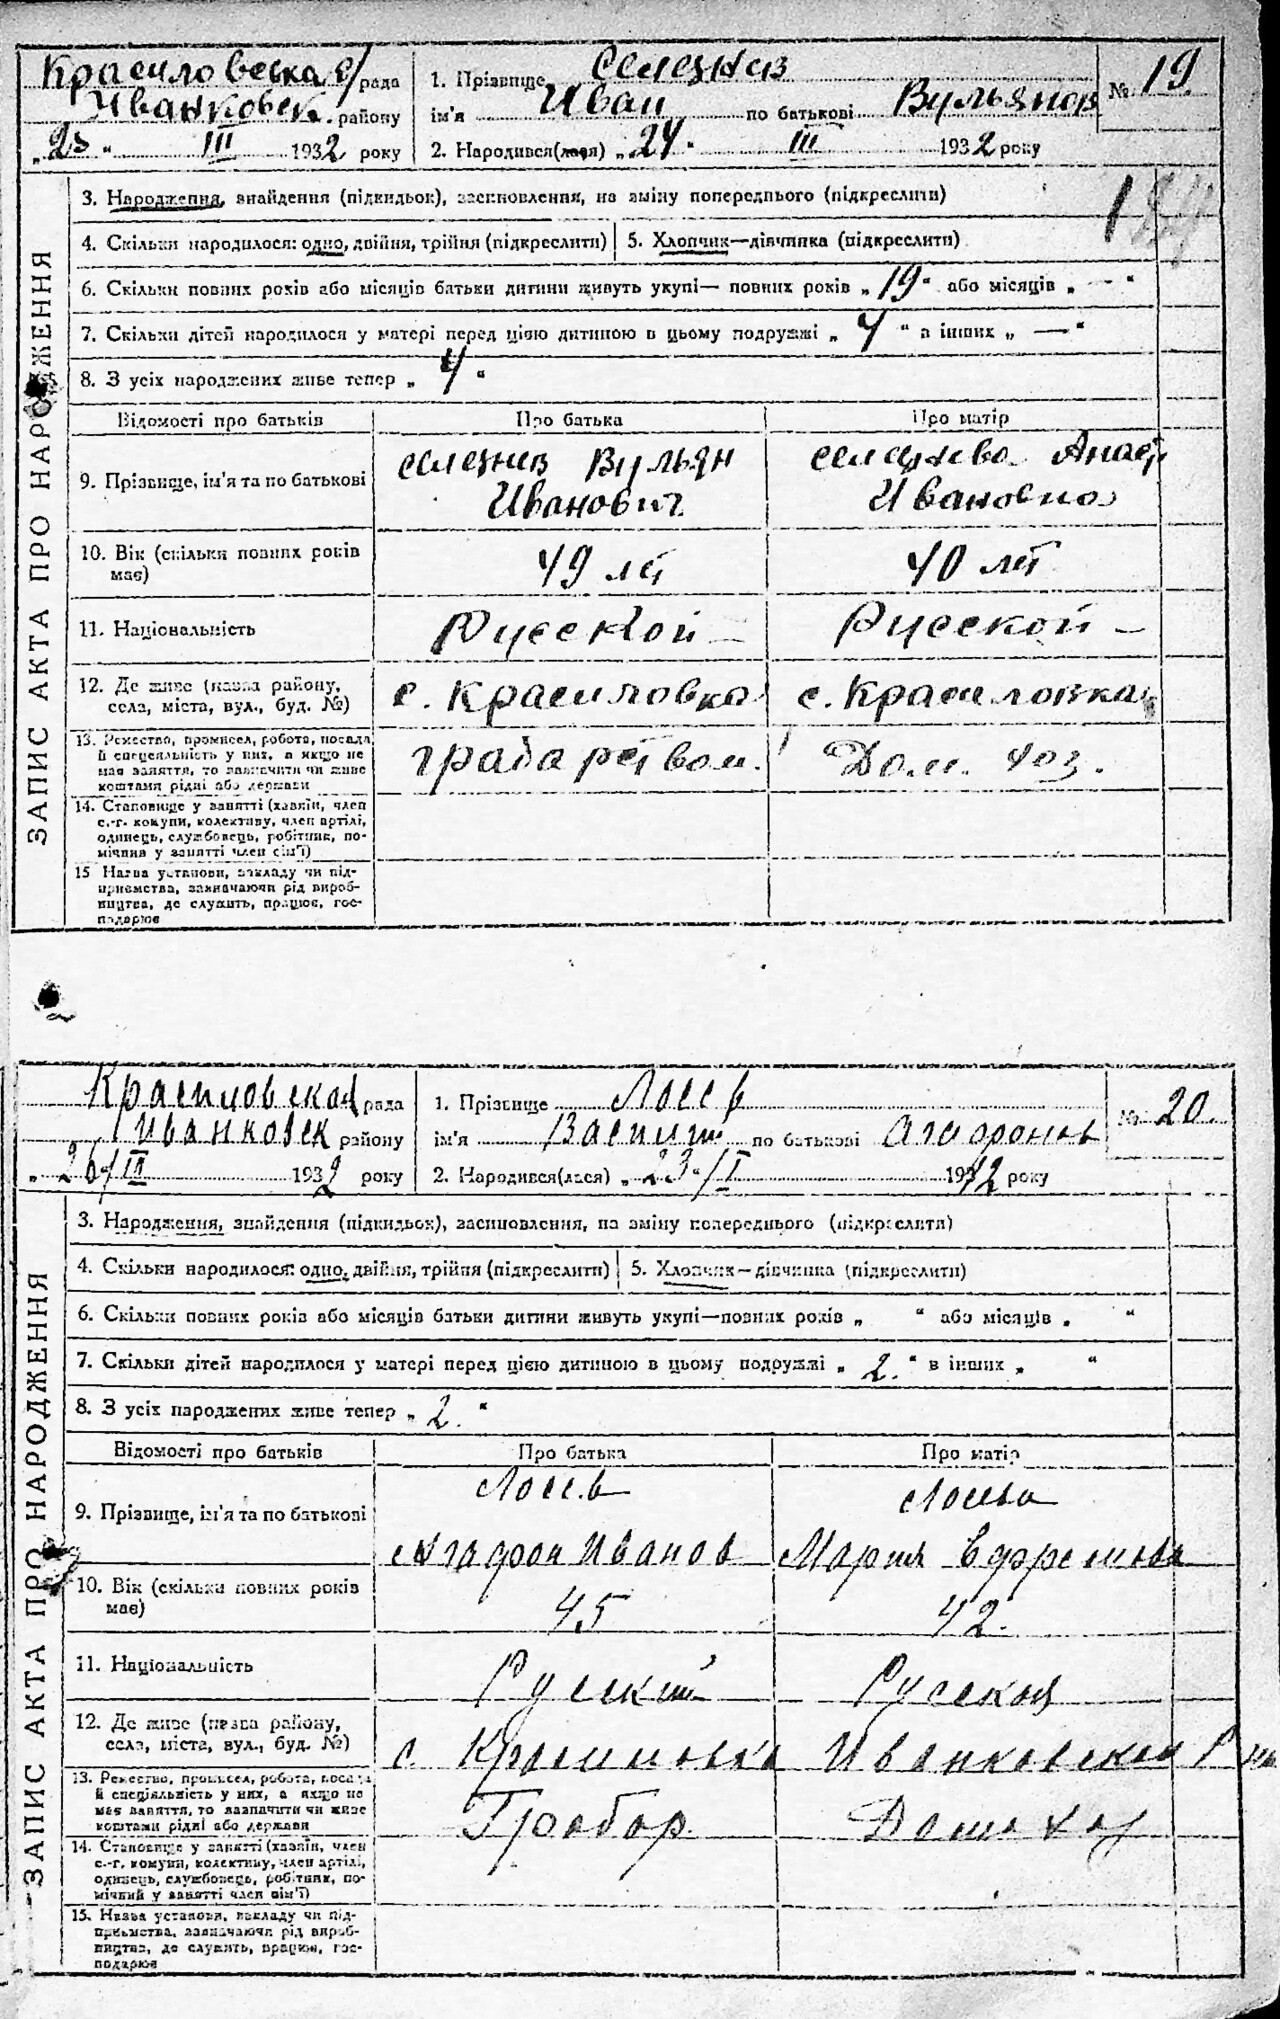 Красиловская с/рада
Иванковск. району
„25“ III 1932 року
1. Прізвище Селезнев
ім'я Иван по батькові Вульянов
2. Народився(лася) „24“ III 1932 року
№ 19
ЗАПИС АКТА ПРО НАРОДЖЕННЯ
3. Народження, знайдення (підкидьок), засиновлення, на зміну попереднього (підкреслити)
4. Скільки народилося: одно, двійня, трійня (підкреслити)
5. Хлопчик—дівчинка (підкреслити)
6. Скільки повних років або місяців батьки дитини живуть укупі— повних років „19“ або місяців „—“
7. Скільки дітей народилося у матері перед цією дитиною в цьому подружжі „4“ в інших „—“
8. З усіх народжених живе тепер „4“
Відомості про батьків Про батька Про матір
9. Прізвище, ім'я та по батькові
Селезнев Вульян
Иванович
Селезнева Анаст
Ивановна
10. Вік (скільки повних років
має)
49 лет
40 лет
11. Національність
Русской —
Русской —
12. Де живе (назва району,
села, міста, вул., буд. №)
с. Красиловка
с. Красиловка
13. Ремество, промисел, робота, посада
й спеціяльність у них, а якщо не
має заняття, то зазначити чи живе
коштами рідні або держави
грабарством.
Дом. хоз.
14. Становище у занятті (хазяїн, член
с.-г. комуни, колективу, член артілі,
одинець, службовець, робітник, по-
мічник у занятті член сім'ї)
15 Назва установи, закладу чи під-
приємства, зазначаючи рід вироб-
ництва, де служить, працює, гос-
подарює
Красиловская рада
Иванковск району
„26/III 1932 року
1. Прізвище Лосев
ім'я Василий по батькові Агафонов
2. Народився(лася) „23/I 1932 року
№ 20.
ЗАПИС АКТА ПРО НАРОДЖЕННЯ
3. Народження, знайдення (підкидьок), засиновлення, на зміну попереднього (підкреслити)
4. Скільки народилося: одно, двійня, трійня (підкреслити)
5. Хлопчик—дівчинка (підкреслити)
6. Скільки повних років або місяців батьки дитини живуть укупі—повних років „ “ або місяців „ “
7. Скільки дітей народилося у матері перед цією дитиною в цьому подружжі „2.“ в інших „ “
8. З усіх народжених живе тепер „2.“
Відомості про батьків Про батька Про матір
9. Прізвище, ім'я та по батькові
Лосев
Агафон Иванов
Лосева
Мария Ефремова
10. Вік (скільки повних років
має)
45
42.
11. Національність
Руский
Руская
12. Де живе (назва району,
села, міста, вул., буд. №)
с. Красиловка Иванковская
13. Ремество, промисел, робота, посада
й спеціяльність у них, а якщо не
має заняття, то зазначити чи живе
коштами рідні або держави
Грабар
Домахоз
14. Становище у занятті (хазяїн, член
с.-г. комуни, колективу, член артілі,
одинець, службовець, робітник, по-
мічний у занятті член сім'ї)
15. Назва установи, закладу чи під-
приємства, зазначаючи рід вироб-
ництва, де служить, працює, гос-
подарює